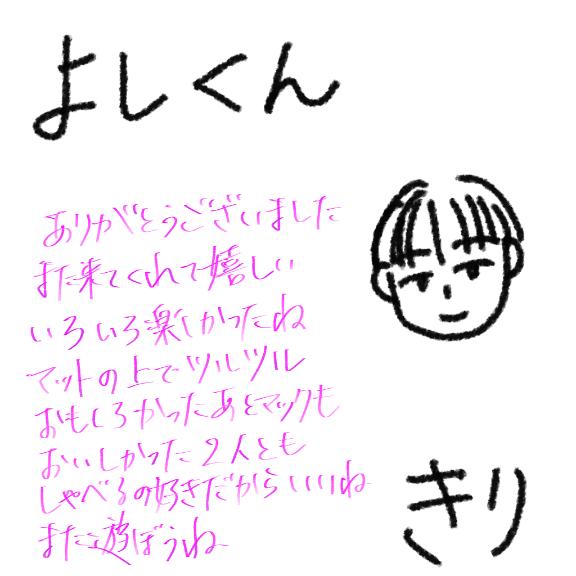 よしくん
ありがとうございました
また来てくれて嬉しい
いろいろ楽しかったね
マットの上でツルツル
おもしろかったあとマックも
おいしかった2人とも
しゃべるの好きだからいいね
また遊ぼうね
きり